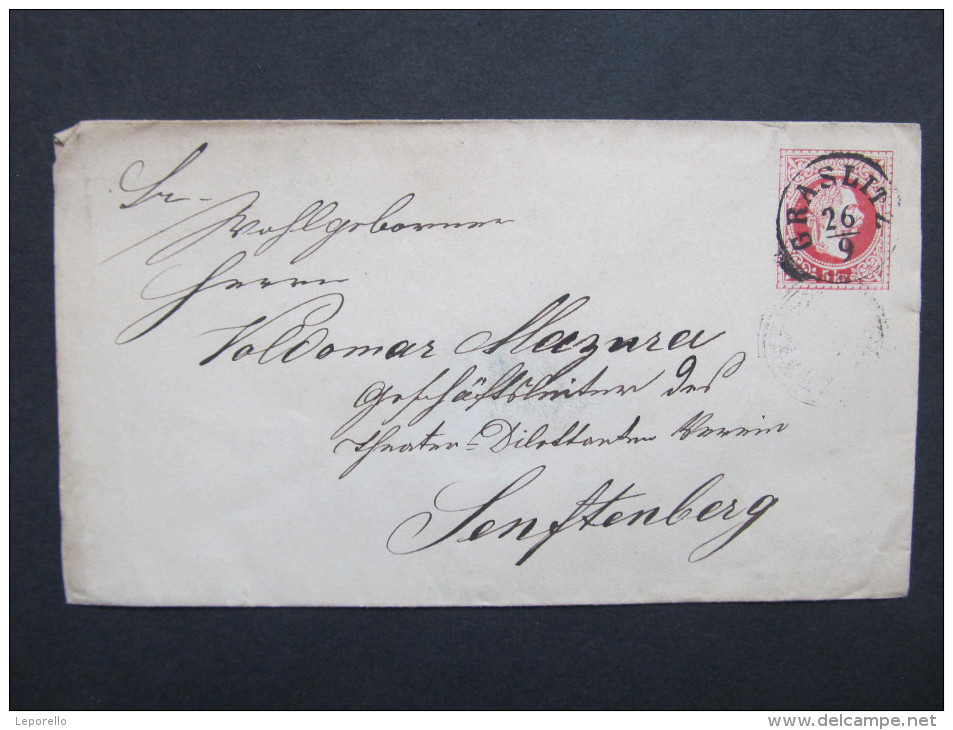 Sr.
Wohlgeboren
Herrn
Voldomar Mazura
Geschäftsleiter des
Theater-Dilettanten Verein
Senftenberg
GRASLITZ
26
9
5 kr
Leporello
www.delcampe.net